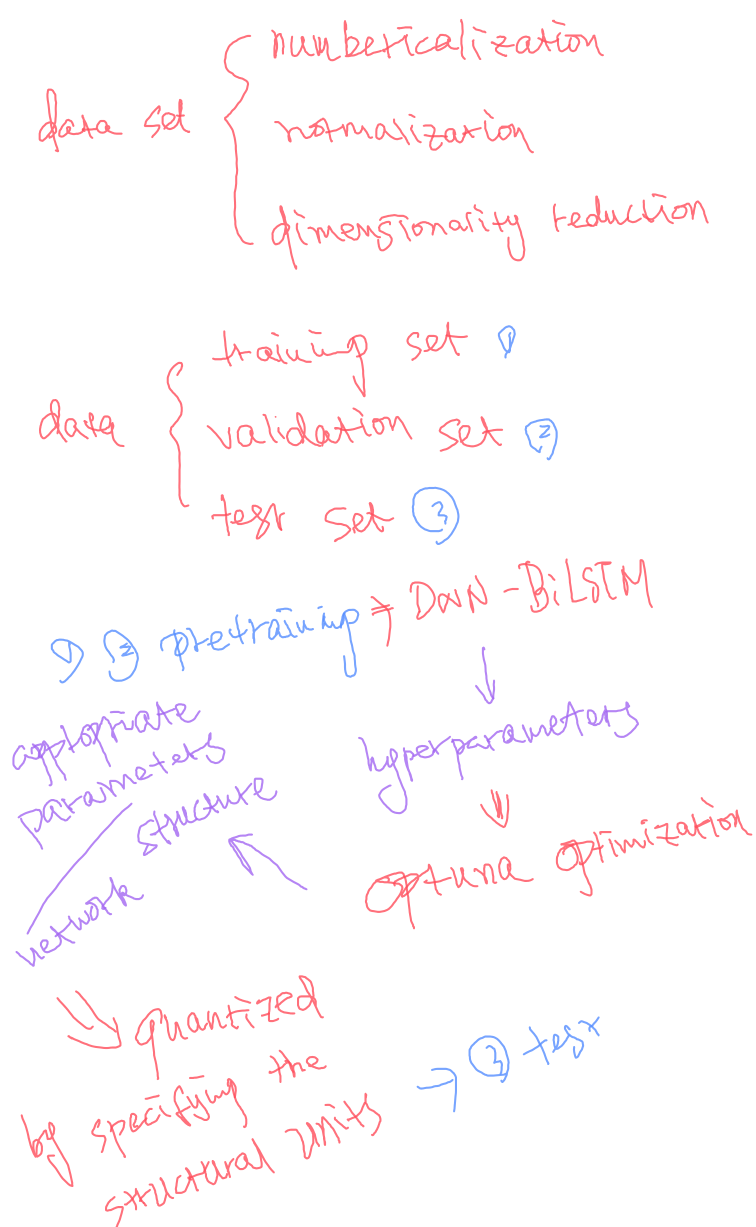 numbericalization
data set
normalization
dimensionality reduction
training set ①
data
validation set ②
test set ③
① ② pretraining ⇒ DNN-BiLSTM
↓
hyperparameters
⇓
Optuna optimization
appropriate
parameters
structure
network
quantized
by specifying the
structural units
→ ③ test